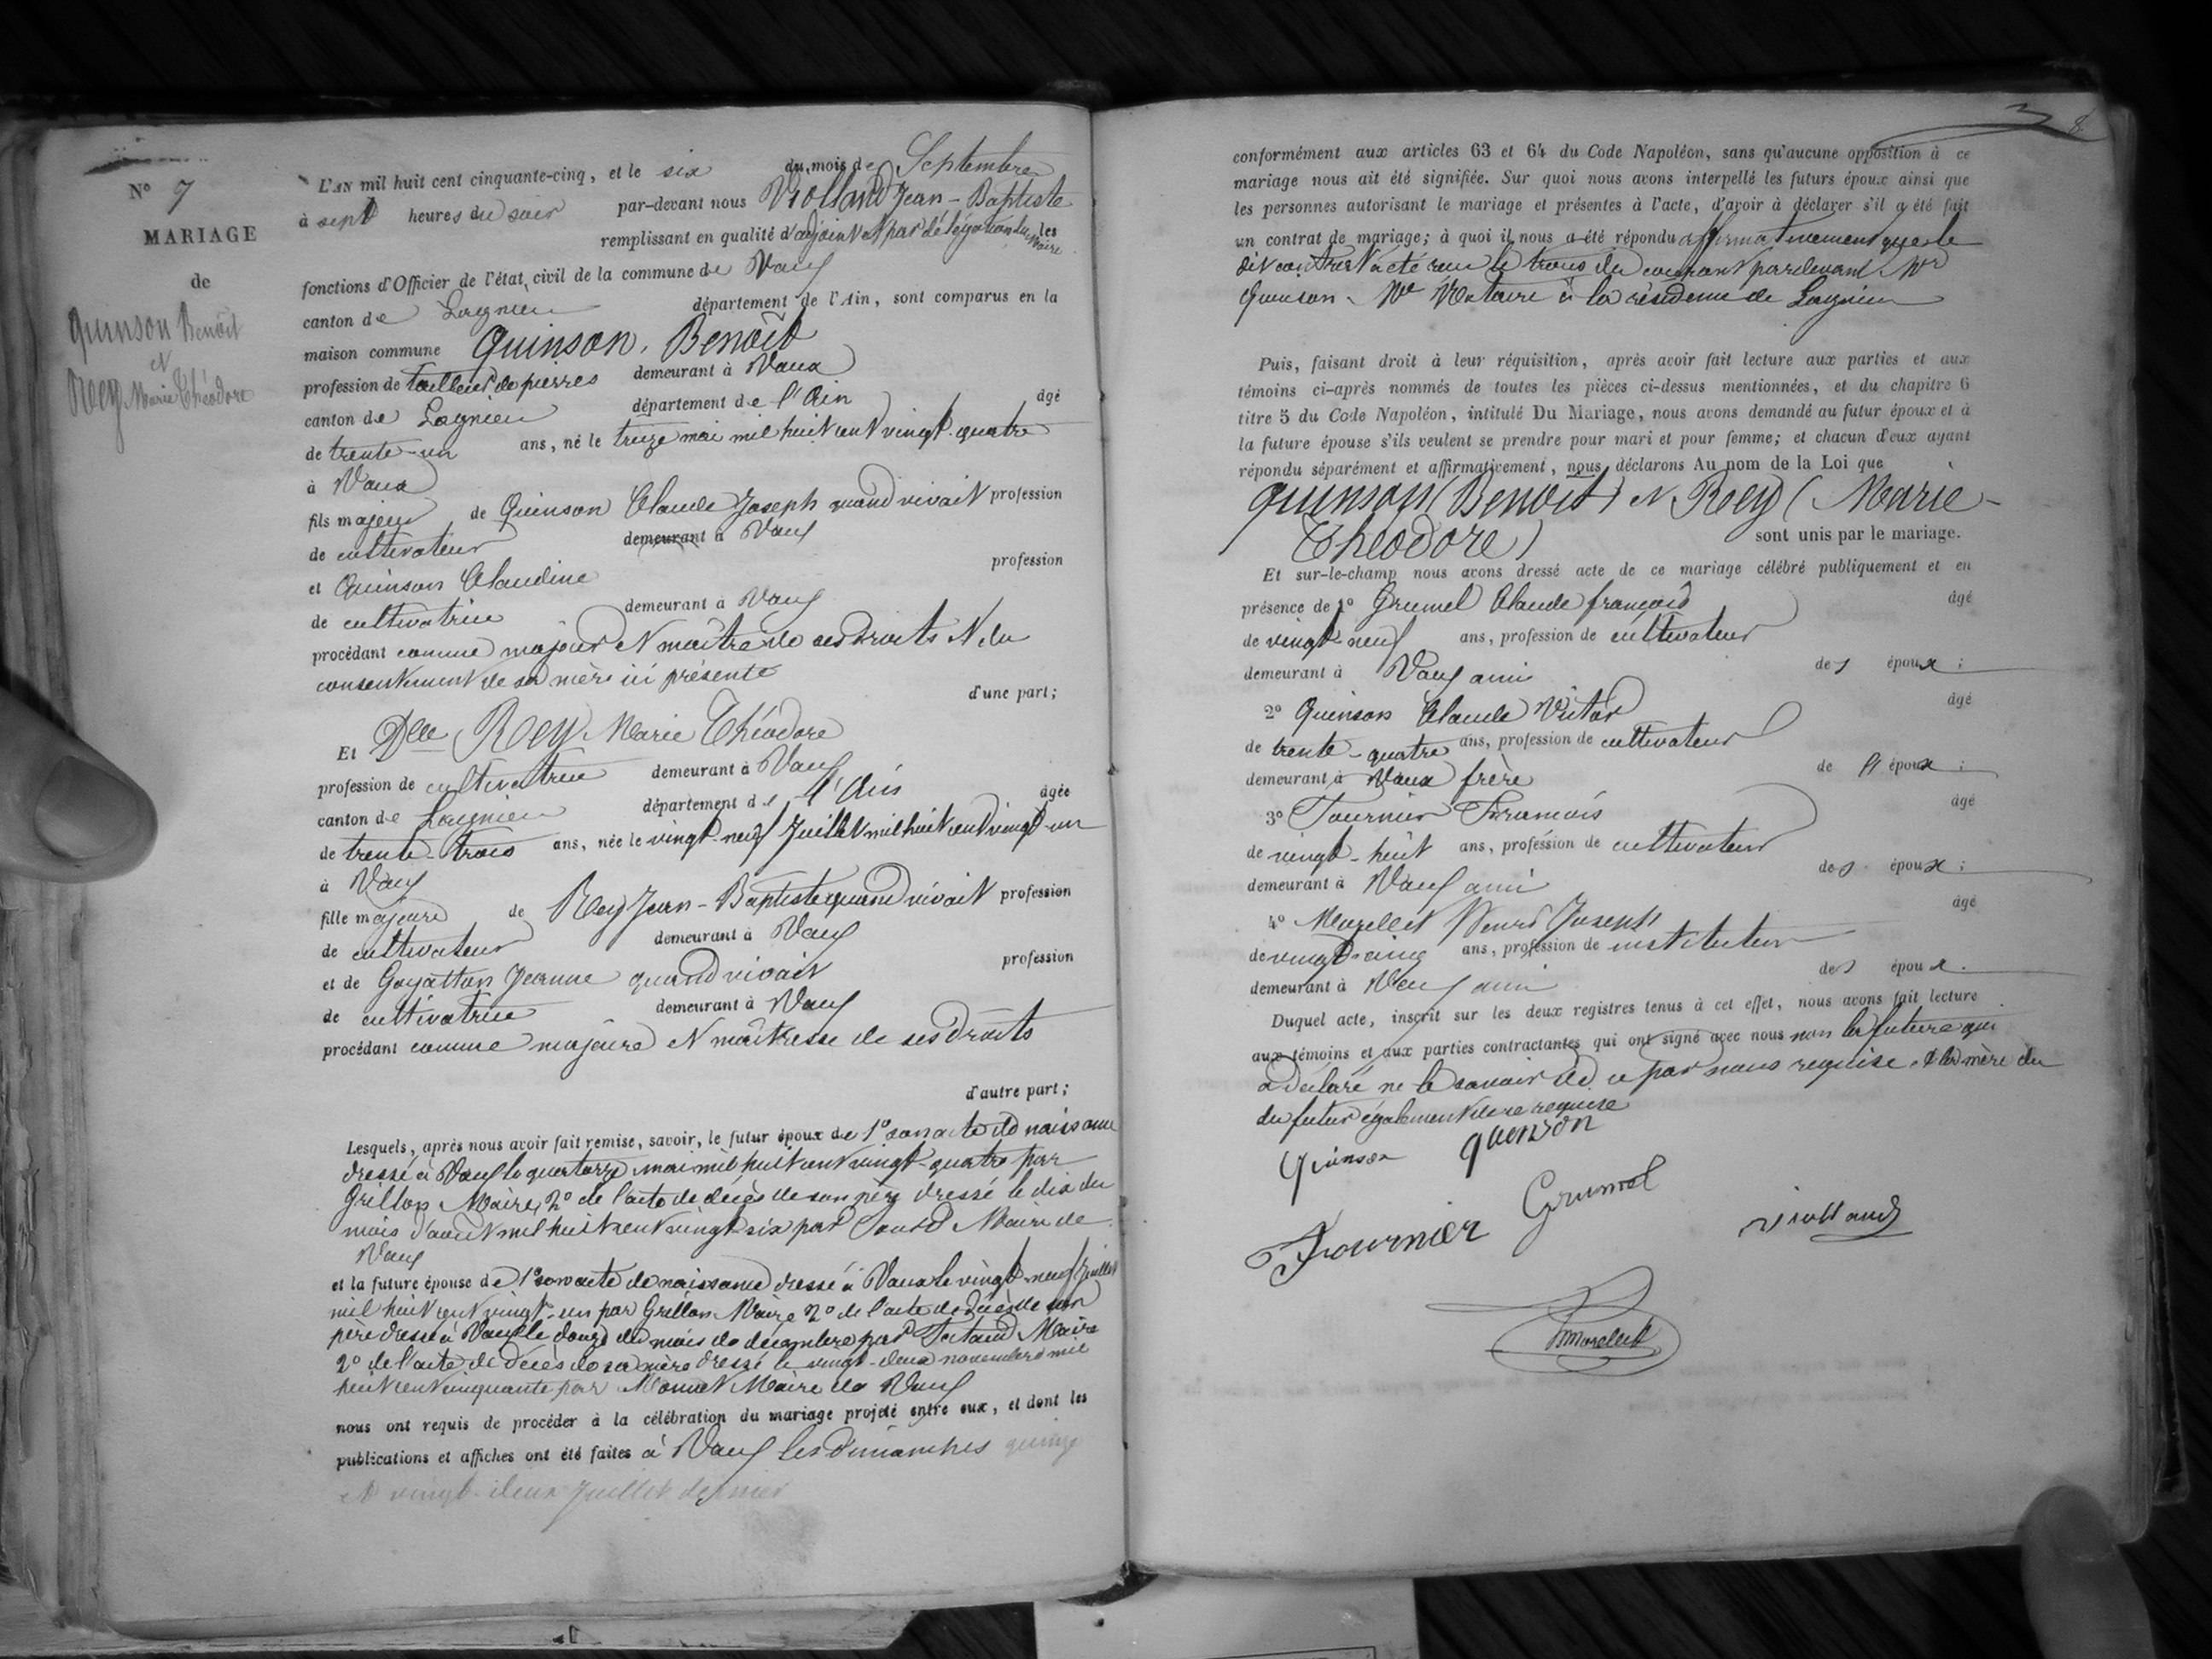 N° 7
MARIAGE
de
Quinson Benoît
et
Rey Marie Théodore
L'AN mil huit cent cinquante-cinq, et le six du mois de Septembre
à sept heures du soir par-devant nous Violland Jean-Baptiste
remplissant en qualité d'adjoint et par délégation du Maire les
fonctions d'Officier de l'état civil de la commune de Vaux
canton de Lagnieu département de l'Ain, sont comparus en la
maison commune Quinson, Benoît
profession de tailleur de pierres demeurant à Vaux
canton de Lagnieu département de l'Ain âgé
de trente-un ans, né le treize mai mil huit cent vingt-quatre
à Vaux
fils majeur de Quinson Claude Joseph quand vivait profession
de cultivateur demeurant à Vaux
et Quinson Claudine profession
de cultivatrice demeurant à Vaux
procédant comme majeur et maître de ses droits et du
consentement de sa mère ici présente
d'une part;
Et Dlle Rey Marie Théodore
profession de cultivatrice demeurant à Vaux
canton de Lagnieu département de l'Ain âgée
de trente-trois ans, née le vingt-neuf Juillet mil huit cent vingt-un
à Vaux
fille majeure de Rey Jean-Baptiste quand vivait profession
de cultivateur demeurant à Vaux
et de Goyatton Jeanne quand vivait profession
de cultivatrice demeurant à Vaux
procédant comme majeure et maîtresse de ses droits
d'autre part;
Lesquels, après nous avoir fait remise, savoir, le futur époux de 1° son acte de naissance
dressé à Vaux le quatorze mai mil huit cent vingt-quatre par
Grillon Maire, 2° de l'acte de décès de son père dressé le dix du
mois d'août mil huit cent vingt-six par Maire de
Vaux
et la future épouse de 1° son acte de naissance dressé à Vaux le vingt-neuf Juillet
mil huit cent vingt-un par Grillon Maire 2° de l'acte de décès de son
père dressé à Vaux le douze du mois de décembre par Maire
2° de l'acte de décès de sa mère dressé le vingt-deux novembre mil
huit cent cinquante par Monnet Maire de Vaux
nous ont requis de procéder à la célébration du mariage projeté entre eux, et dont les
publications et affiches ont été faites à Vaux les dimanches quinze
et vingt-deux Juillet dernier
8
conformément aux articles 63 et 64 du Code Napoléon, sans qu'aucune opposition à ce
mariage nous ait été signifiée. Sur quoi nous avons interpellé les futurs époux ainsi que
les personnes autorisant le mariage et présentes à l'acte, d'avoir à déclarer s'il a été fait
un contrat de mariage; à quoi il nous a été répondu affirmativement que le
dit contrat a été reçu le trois du courant pardevant Mr
Quinson Me Notaire à la résidence de Lagnieu
Puis, faisant droit à leur réquisition, après avoir fait lecture aux parties et aux
témoins ci-après nommés de toutes les pièces ci-dessus mentionnées, et du chapitre 6
titre 5 du Code Napoléon, intitulé Du Mariage, nous avons demandé au futur époux et à
la future épouse s'ils veulent se prendre pour mari et pour femme; et chacun d'eux ayant
répondu séparément et affirmativement, nous déclarons Au nom de la Loi que
Quinson (Benoît) et Rey (Marie-
Théodore) sont unis par le mariage.
Et sur-le-champ nous avons dressé acte de ce mariage célébré publiquement et en
présence de 1° Grumel Claude françois âgé
de vingt-neuf ans, profession de cultivateur
demeurant à Vaux ami des époux;
2° Quinson Claude Victor âgé
de trente-quatre ans, profession de cultivateur
demeurant à Vaux frère de l' époux;
3° Fournier François âgé
de vingt-huit ans, profession de cultivateur
demeurant à Vaux ami des époux;
4° Morellet Joseph âgé
de vingt-cinq ans, profession de instituteur
demeurant à Vaux ami des époux.
Duquel acte, inscrit sur les deux registres tenus à cet effet, nous avons fait lecture
aux témoins et aux parties contractantes qui ont signé avec nous non la future qui
a déclaré ne le savoir de ce par nous requise, & la mère du
du futur également de ce requise
Quinson quinson
Grumel
Fournier Violland
Morellet